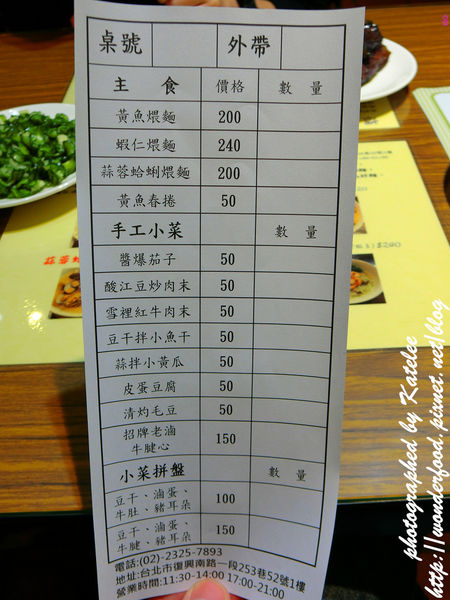 桌號 外帶
主 食 價格 數 量
黃魚煨麵 200
蝦仁煨麵 240
蒜蓉蛤蜊煨麵 200
黃魚春捲 50
手工小菜 數 量
醬爆茄子 50
酸江豆炒肉末 50
雪裡紅牛肉末 50
豆干拌小魚干 50
蒜拌小黃瓜 50
皮蛋豆腐 50
清灼毛豆 50
招牌老滷
牛腱心 150
小菜拼盤 數 量
豆干、滷蛋、
牛肚、豬耳朵 100
豆干、滷蛋、
牛腱、豬耳朵 150
電話:(02)-2325-7893
地址:台北市復興南路一段253巷52號1樓
營業時間:11:30-14:00 17:00-21:00
蒜蓉
photographed by Katelee
http://wonderfood.pixnet.net/blog